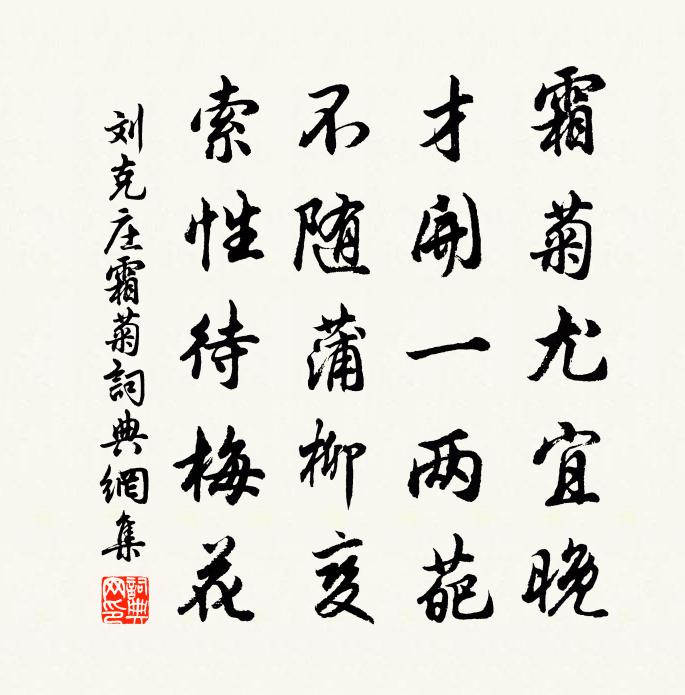 霜菊尤宜晚
才開一两葩
不随蒲柳变
索性待梅花
刘克庄霜菊詞典網集
詞典网印